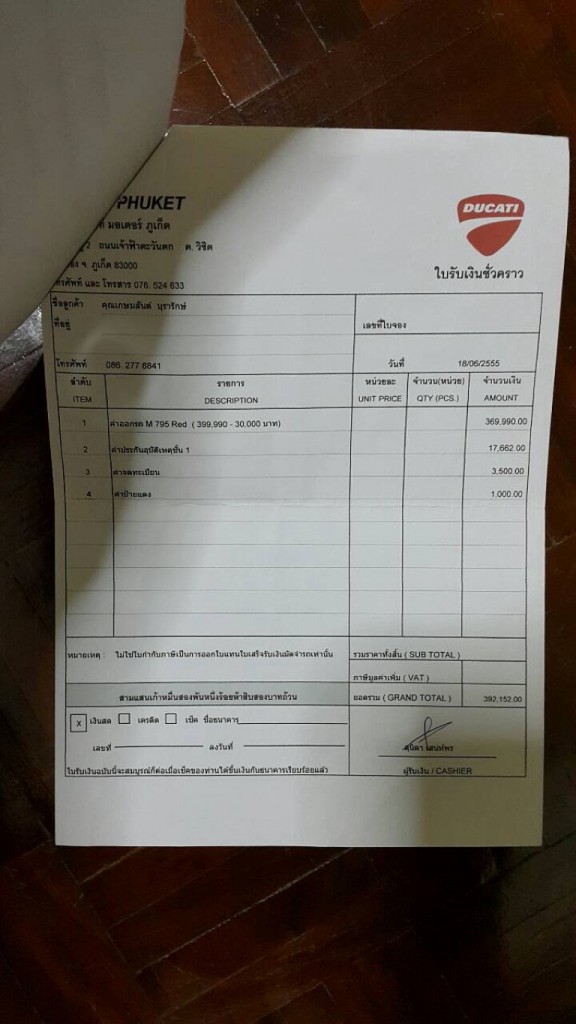 PHUKET
DUCATI
มอเตอร์ ภูเก็ต
2 ถนนเจ้าฟ้าตะวันตก ต. วิชิต
จ. ภูเก็ต 83000
โทรศัพท์ และ โทรสาร 076. 524 633
ใบรับเงินชั่วคราว
ชื่อลูกค้า คุณเกษมสันต์ นุรารักษ์
ที่อยู่
เลขที่ใบจอง
โทรศัพท์ 086. 277 6841 วันที่ 18/06/2555
ลำดับ รายการ หน่วยละ จำนวน(หน่วย) จำนวนเงิน
ITEM DESCRIPTION UNIT PRICE QTY (PCS.) AMOUNT
1 ค่าออกรถ M 795 Red ( 399,990 - 30,000 บาท) 369,990.00
2 ค่าประกันอุบัติเหตุชั้น 1 17,662.00
3 ค่าจดทะเบียน 3,500.00
4 ค่าป้ายแดง 1,000.00
หมายเหตุ : ไม่ใช่ใบกำกับภาษีเป็นการออกใบแทนใบเสร็จรับเงินมัดจำรถเท่านั้น รวมราคาทั้งสิ้น ( SUB TOTAL )
ภาษีมูลค่าเพิ่ม ( VAT )
สามแสนเก้าหมื่นสองพันหนึ่งร้อยห้าสิบสองบาทถ้วน ยอดรวม ( GRAND TOTAL ) 392,152.00
x เงินสด เครดิต เช็ค ชื่อธนาคาร
เลขที่ ลงวันที่
สุนิดา เสนห์พร
ใบรับเงินฉบับนี้จะสมบูรณ์ก็ต่อเมื่อเช็คของท่านได้ขึ้นเงินกับธนาคารเรียบร้อยแล้ว ผู้รับเงิน / CASHIER